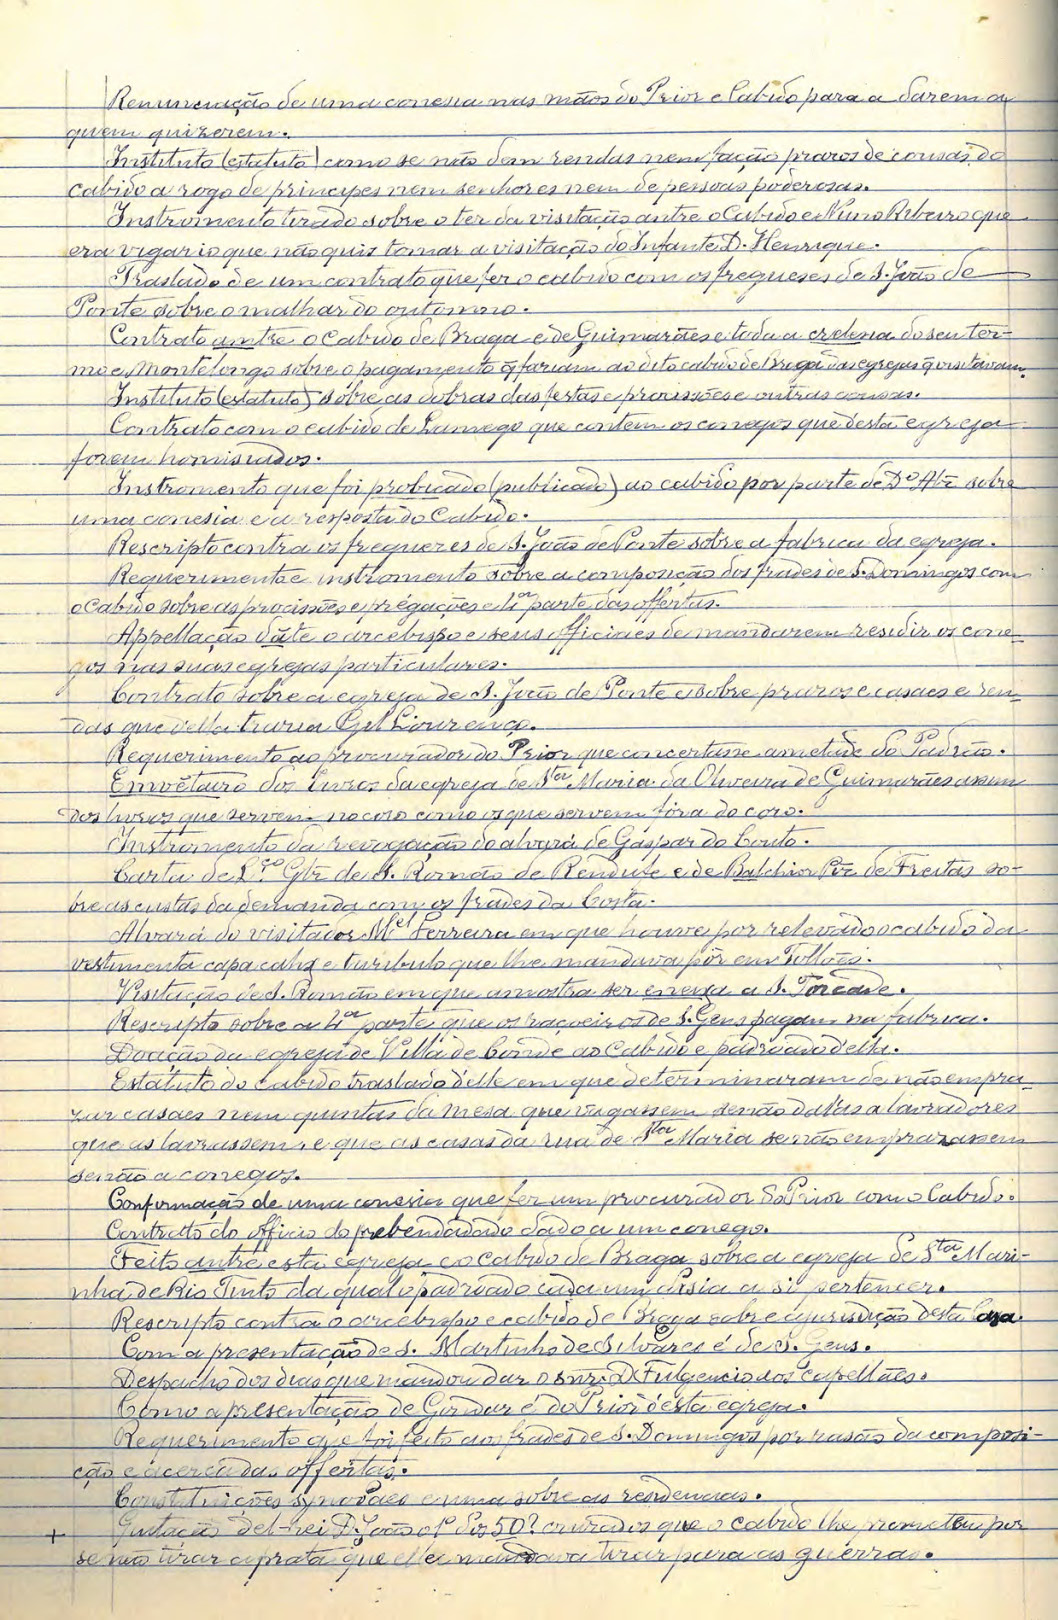 Renunciação de uma conesia nas mãos do Prior e Cabido para a darem a
quem quizerem.
Instituto (estatuto) como se não dem rendas nem fação prazos de cousas do
cabido a rogo de principes nem senhores nem de pessoas poderosas.
Instromento tirado sobre o ter da visitação antre o Cabido e Nuno Ribeiro que
era vigario que não quis tomar a visitação do Infante D. Henrique.
Traslado de um contrato que fez o cabido com os freguezes de S. João de
Ponte sobre o malhar do outomno.
Contrato antre o Cabido de Braga e de Guimarães e toda a crelezia do seu ter-
mo e Montelongo sobre o pagamento q̃ fariam ao dito cabido de Braga das egrejas q̃ visitavam.
Instituto (estatuto) sobre as dobras das festas e procissões e outras cousas.
Contrato com o cabido de Lamego que contem os conegos que desta egreja
forem homisiados.
Instromento que foi probicado (publicado) ao cabido por parte de D.º Abz̃ sobre
uma conesia e a resposta do Cabido.
Rescripto contra os freguezes de S. João de Ponte sobre a fabrica da egreja.
Requerimento e instromento sobre a composição dos frades de S. Domingos com
o Cabido sobre as procissões e prégações e 4ª parte das offertas.
Appellação dãte o arcebispo e seus officiaes de mandarem residir os cone-
gos nas suas egrejas particulares.
Contrato sobre a egreja de S. João de Ponte e sobre prazos e casaes e ren-
das que della trazia Gil Lourenço.
Requerimento ao procurador do Prior que concertasse ametade do Padrão.
Emvẽtairo dos livros da egreja de Sta Maria da Oliveira de Guimarães assim
dos livros que servem no coro como os que servem fóra do coro.
Instromento da revogação do alvará de Gaspar do Couto.
Carta de L.ço Glz̃ de S. Romão de Rendufe e de Balchior Pz̃ de Freitas so-
bre as custas da demanda com os frades da Costa.
Alvará do visitador Mel Ferreira em que houve por relevado o cabido da
vestimenta capa caliz e turibulo que lhe mandava pôr em Tollões.
Visitação de S. Romão em que amostra ser enexa a S. Torcade.
Rescripto sobre a 4ª parte que os raçoeiros de S. Gens pagam na fabrica.
Doação da egreja de Villa de Conde ao Cabido e padroado d'ella.
Estatuto do cabido traslado d'elle em que determinaram de não empra-
zar casaes nem quintas da mesa que vagassem senão dal'as a lavradores
que as lavrassem, e que as casas da rua de Sta Maria se não emprazassem
senão a conegos.
Confirmação de uma conesia que fez um procurador do Prior com o Cabido.
Contratto do officio do prebendadado dado a um conego.
Feito antre esta egreja e o Cabido de Braga sobre a egreja de Sta Mari-
nha de Rio Tinto da qual o padroado cada um disia a si pertencer.
Rescripto contra o arcebispo e cabido de Braga sobre a jurisdição desta Casa.
Com a presentação de S. Martinho de Silvares é de S. Gens.
Despacho dos dias que mandou dar o snr. D. Fulgencio aos capellães.
Como a presentação de Gondar é do Prior d'esta egreja.
Requerimento que foi feito aos frades de S. Domingos por rasão da composi-
ção e acerca das offertas.
Constituições synodaes e uma sobre as residencias.
+ Quitação del-rei D. João o 1º dos 50? cruzados que o cabido lhe prometeu por
se não tirar a prata que elle mandava tirar para as guerras.